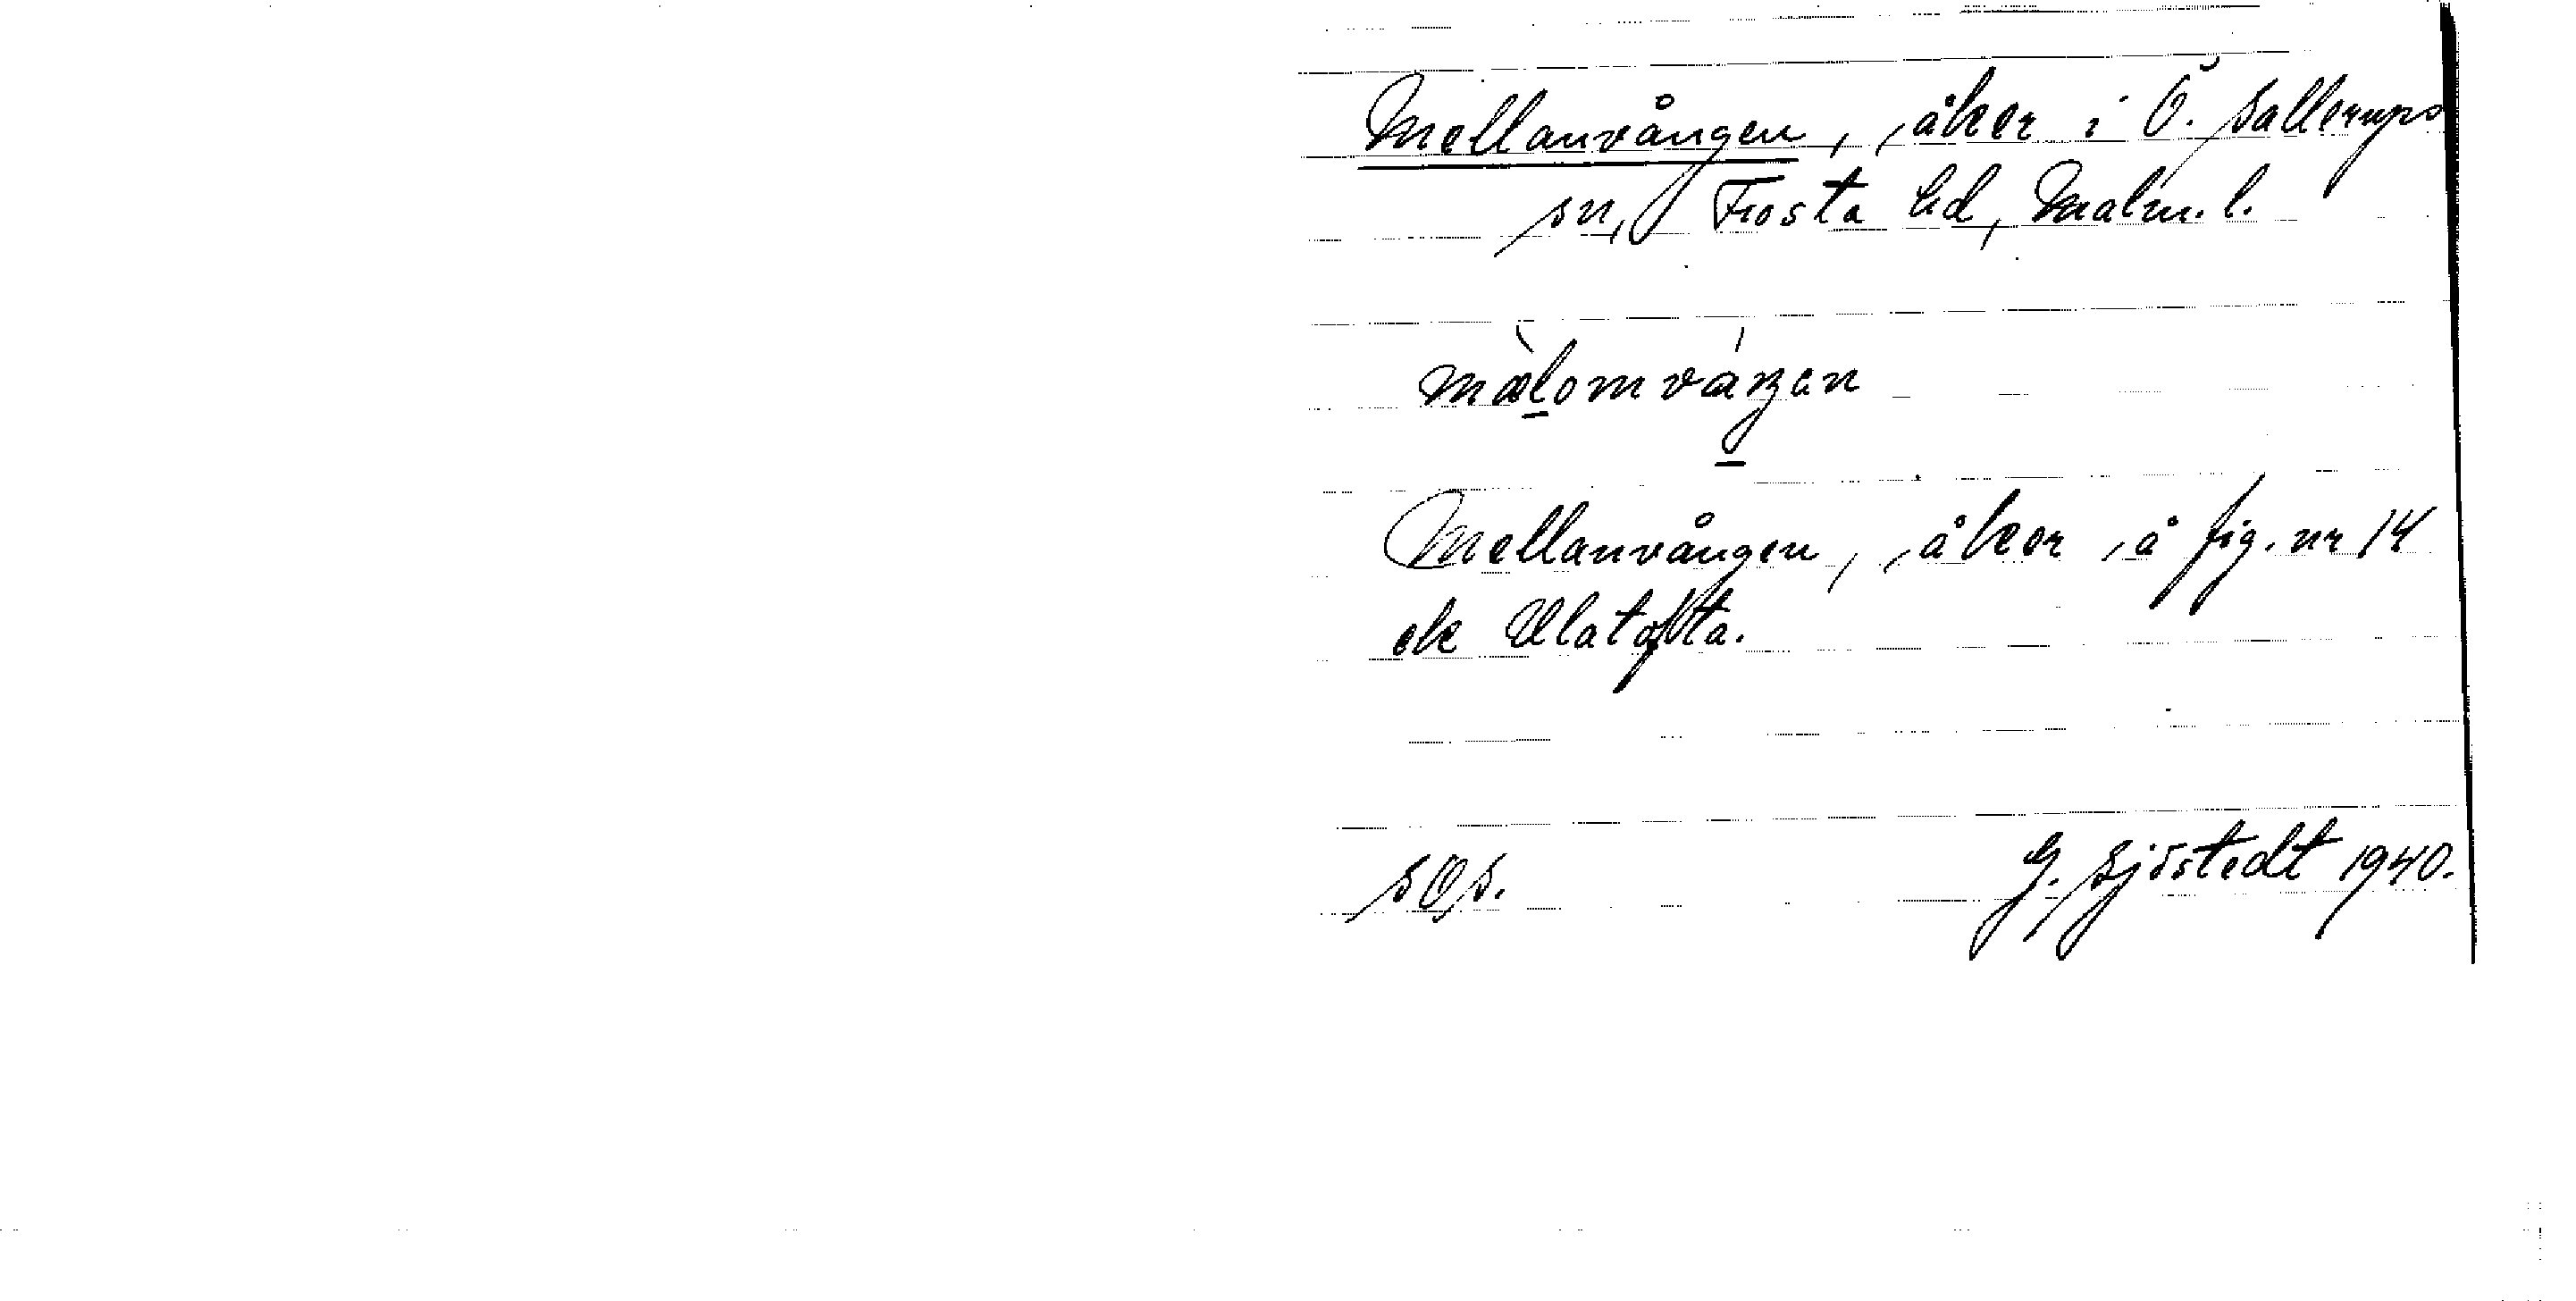 Mellanvången, åker i Ö. Sallerups
sn, Frosta hd, Malm. l.
mælomvaŋen
Mellanvången, åker å fig. nr 14
ek Ulatofta.
SOS.
G. Sjöstedt 1940.